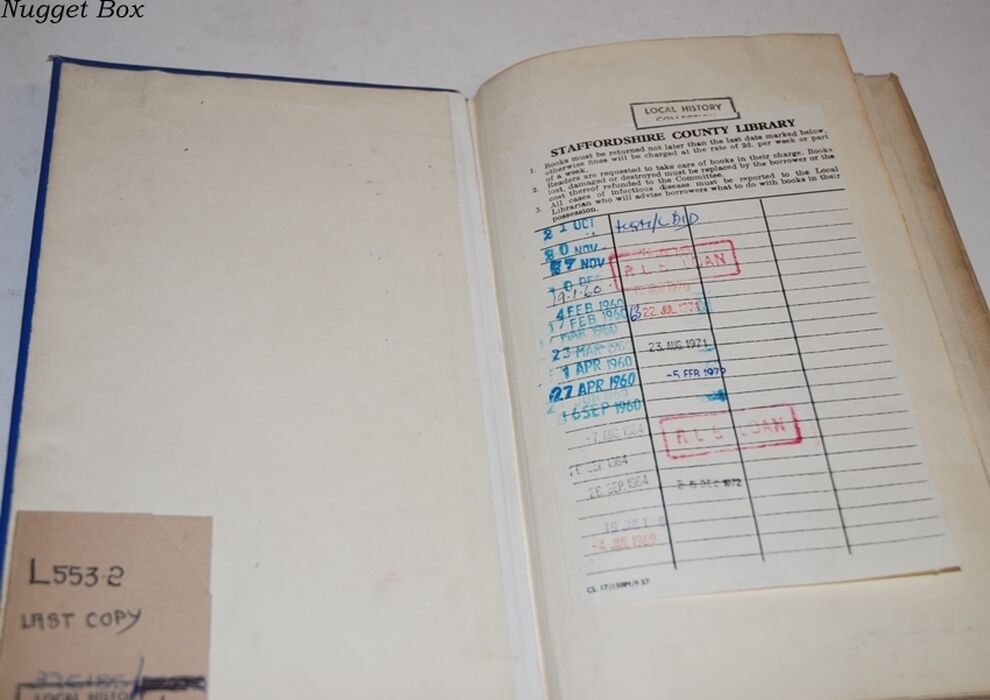 Nugget Box
LOCAL HISTORY
STAFFORDSHIRE COUNTY LIBRARY
1. Books must be returned not later than the last date marked below,
otherwise fines will be charged at the rate of 2d. per week or part
of a week.
2. Readers are requested to take care of books in their charge. Books
lost, damaged or destroyed must be replaced by the borrower or the
cost thereof refunded to the Committee.
3. All cases of infectious disease must be reported to the Local
Librarian who will advise borrowers what to do with books in their
possession.
21 OCT
NOV
27 NOV
R L S LOAN
19.1.60
4 FEB 1960
17 FEB 1960
22 JUL 1971
MAR 1960
23 MAR
23. AUG 1971
1 APR 1960
-5 FEB 1972
27 APR 1960
16 SEP 1960
R L S LOAN
SEP 1964
SEP 1964
DEC 1972
-4 JAN 1969
L553·2
LAST COPY
LOCAL HISTORY